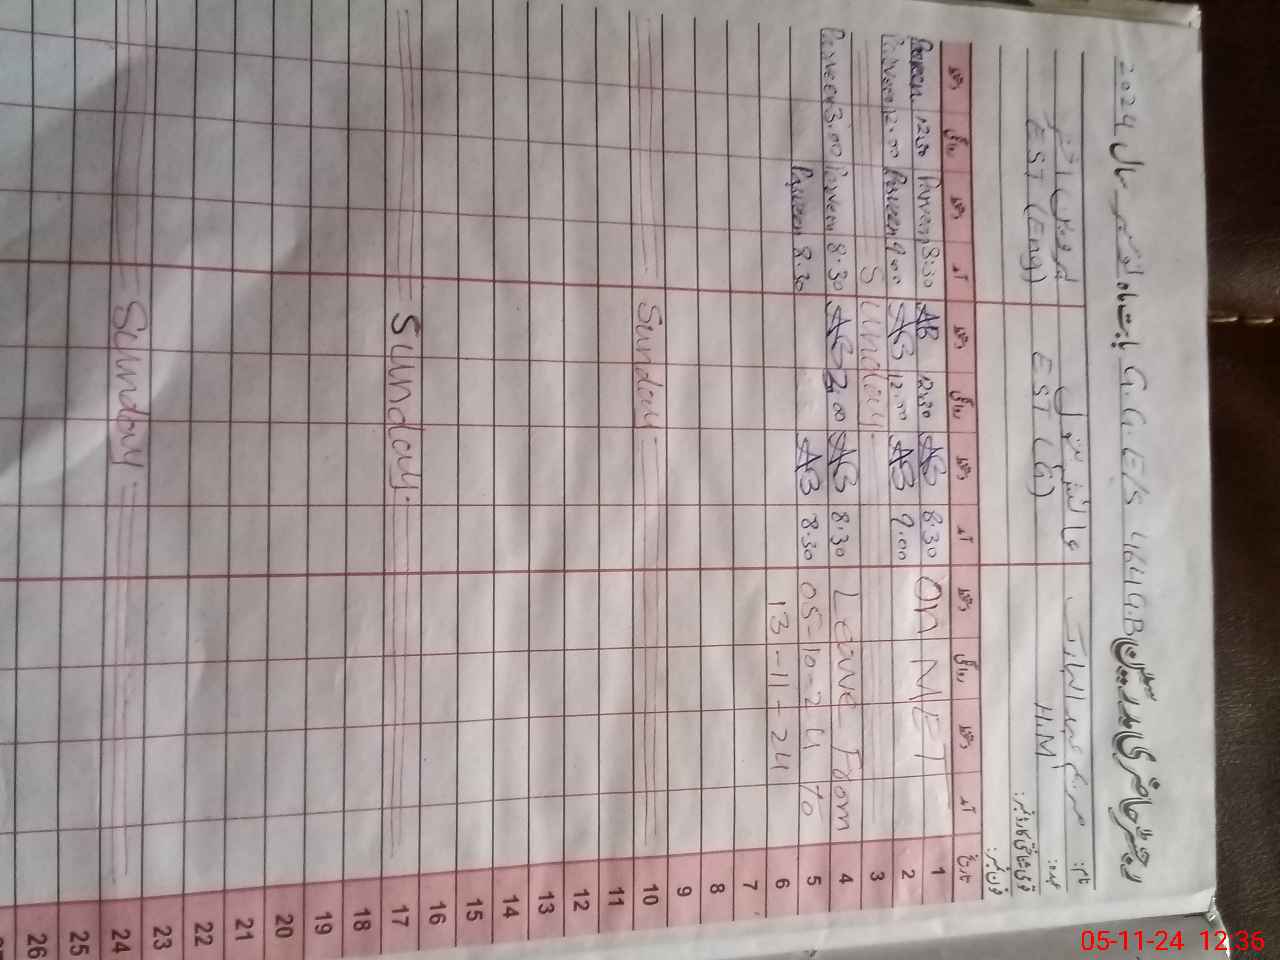 رجسٹر حاضری مدرسین G.G.E/S 464 G.B بابت ماہ نومبر سال 2024
نام: مریم عبدالمبارک عائشہ بتول
عہدہ: H.M EST (G) EST (Eng)
قومی شناختی کارڈ نمبر:
فون نمبر:
تاریخ آمد دستخط روانگی دستخط آمد دستخط روانگی دستخط آمد دستخط روانگی دستخط
1 On MET 8:30 AB 12:30 AB 8:30 Parveen 12:30 Parveen
2 9:00 AB 12:00 AB 9:00 Parveen 12:00 Parveen
3 Sunday
4 Leave From 8:30 AB 2:00 AB 8:30 Parveen 3:00 Parveen
5 05-10-24 to 8:30 AB 8:30 Parveen
6 13-11-24
7
8
9
10 Sunday
11
12
13
14
15
16
17 Sunday
18
19
20
21
22
23
24 Sunday
25
26
05-11-24 12:36